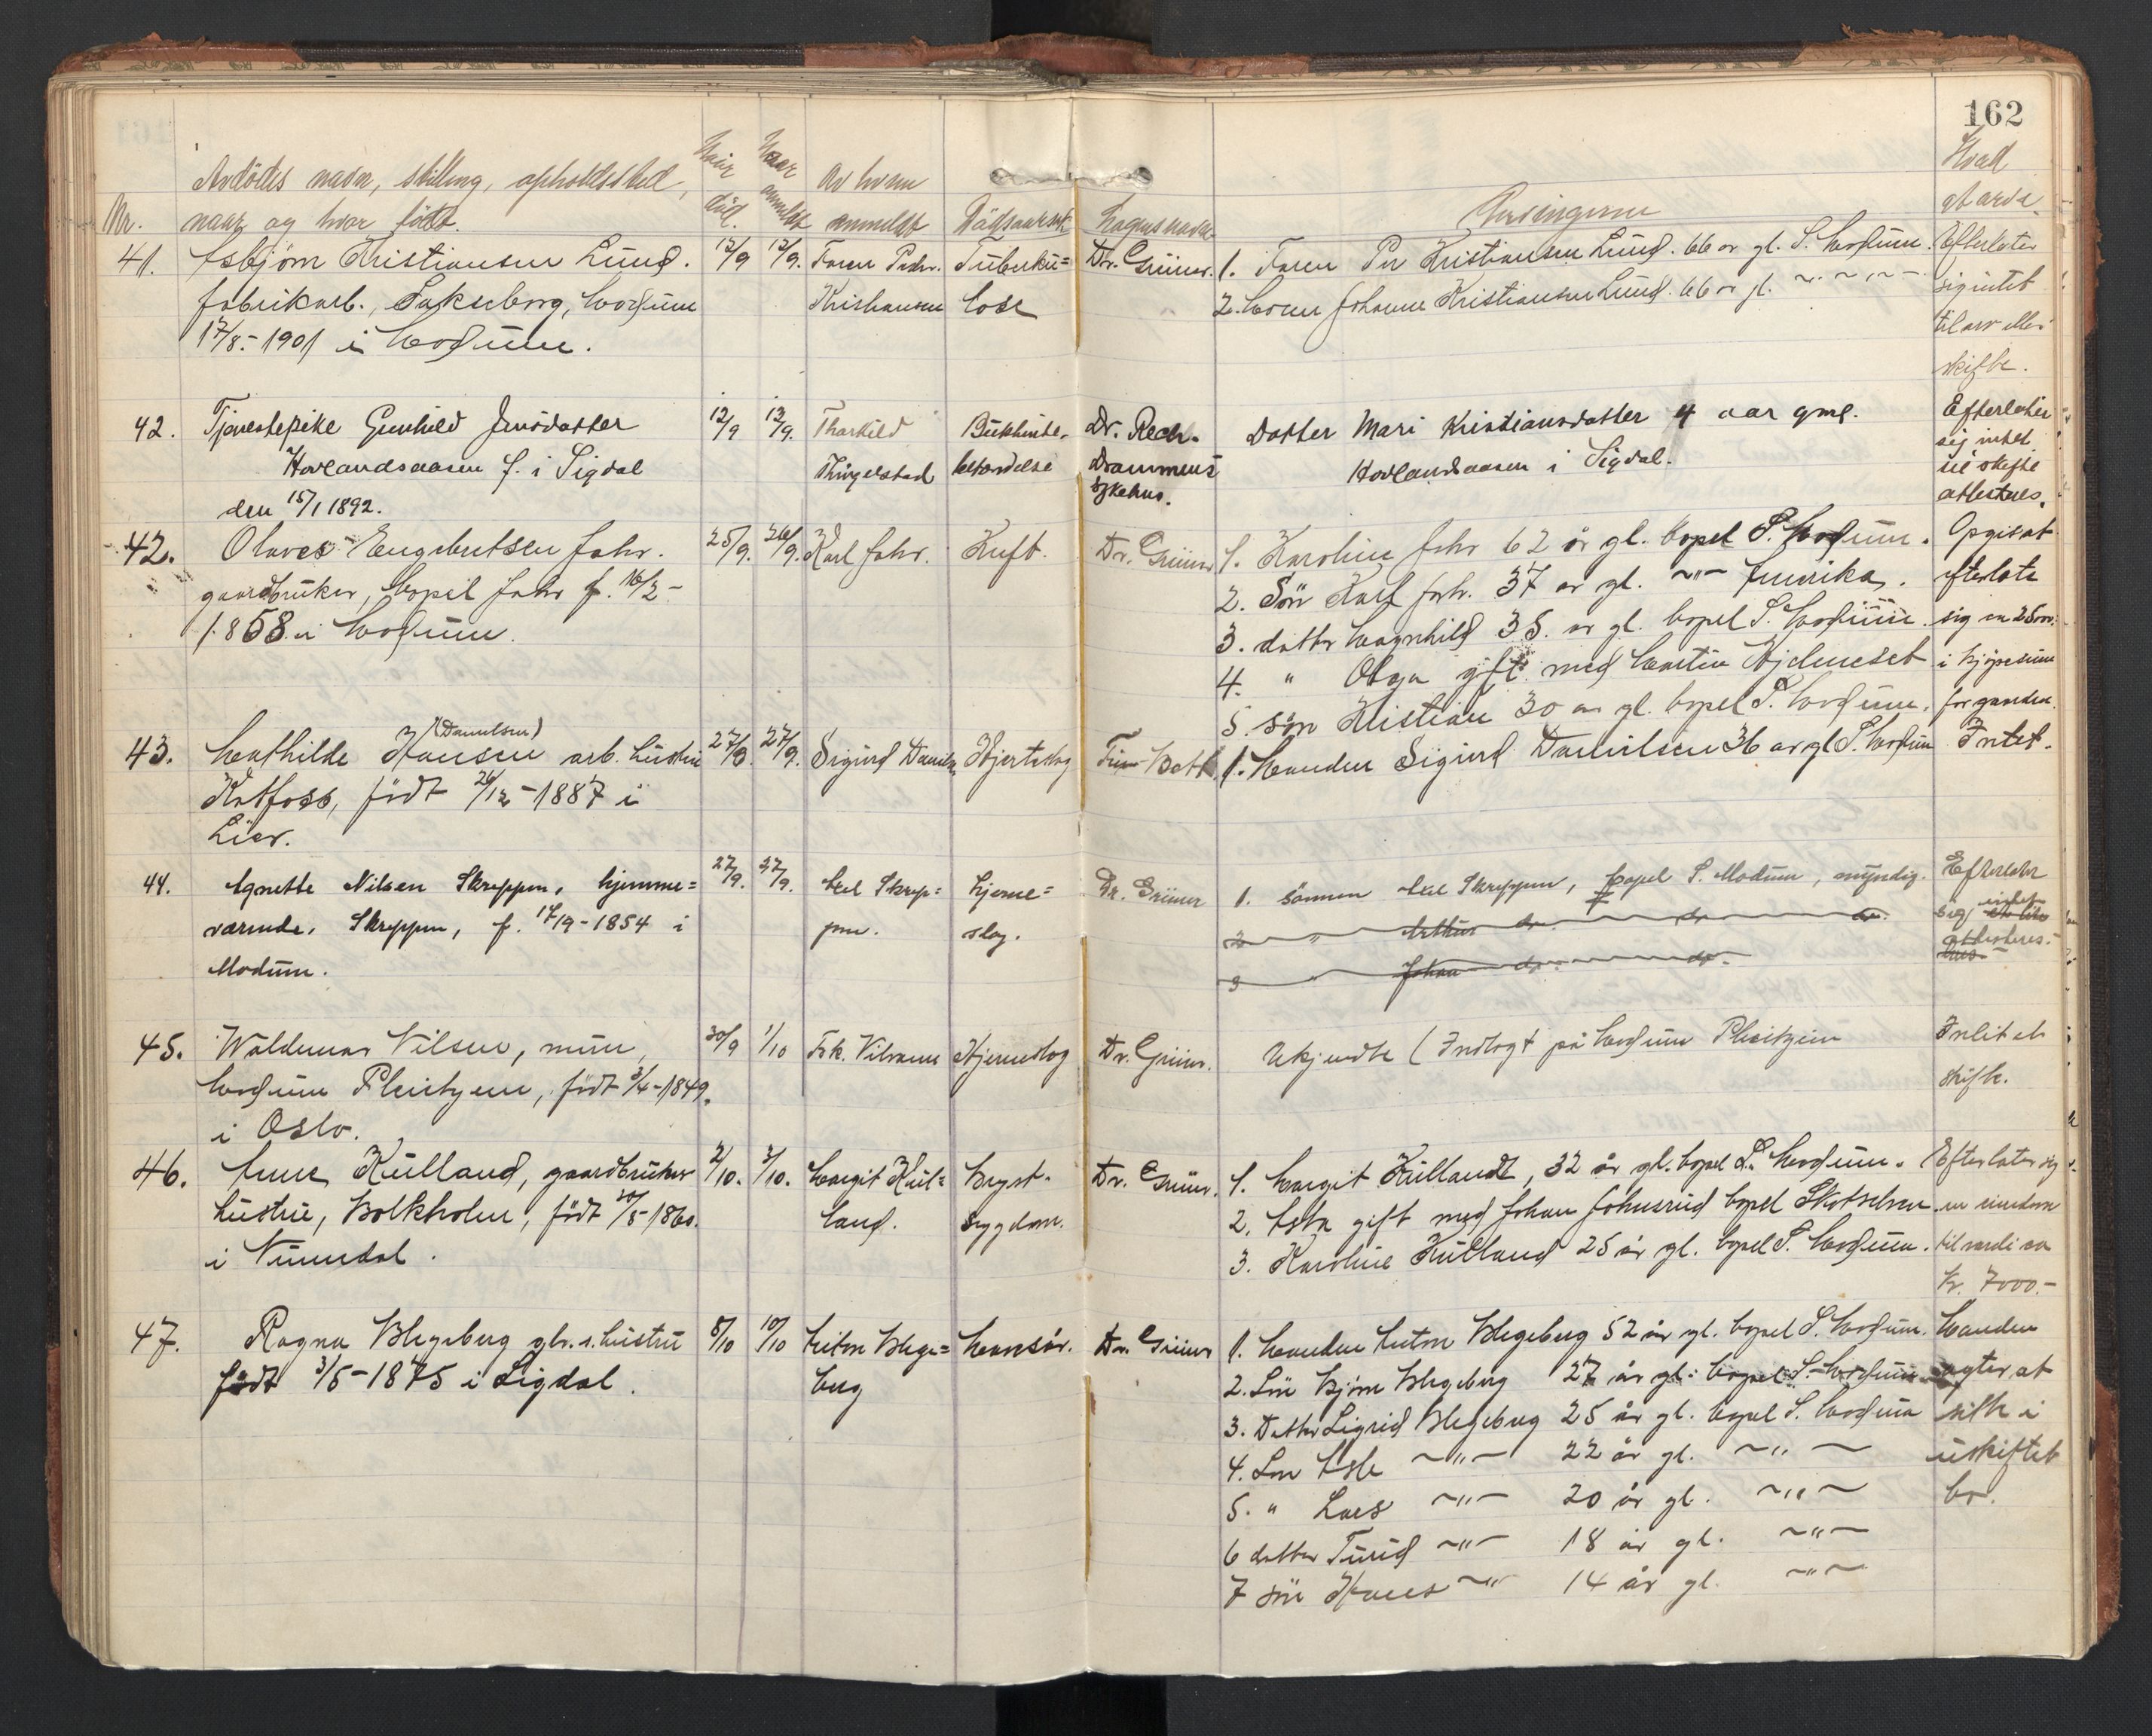 162
Nr.
Avdödes navn, stilling, opholdssted,
naar og hvor född.
Naar död.
Naar anmeldt
Av hvem
anmeldt
Dödsaarsak
Lægens navn
Arvingerne
Hvad
at arve
41. Asbjörn Kristiansen Lund.
fabrikarb., Modum
17/8.-1901 i Modum.
12/9 12/9.
Faren Pedr.
Kristiansen
Tuberku=
lose
Dr. Grüner.
1. Faren Per Kristiansen Lund. 66 år gl. S. Modum.
2. Moren Johanne Kristiansen Lund. 66 år gl. ~"~ ~"~
Efterlater
sig intet
til arv eller
skifte.
42. Tjenestepike Gunhild Jensdatter
Hovlandsaasen f. i Sigdal
den 15/1 1892.
12/9 13/9.
Tharkild
Thingelstad
Bukhinde-
betændelse
Dr. Reck.
Drammens
sykehus.
Datter Mari Kristiansdatter 4 aar gml.
Hovlandsaasen i Sigdal.
Efterlater
sig intet
ui skifte
attesteres.
42. Olaves Engebretsen Johr.
gaardbruker, bopel Johr f. 16/2-
1858 i Modum.
25/9. 26/9.
Karl Johr.
Kreft.
Dr. Grüner
1. Karoline Johr 62 år gl. bopel S. Modum.
2. Sön Karl Johr. 37 år gl. ~"~ Amerika.
3. datter Magnhild 35. år gl. bopel S. Modum.
4. " Olga gift med Martin Hjelmeset
5. sön Kristian 30 år gl. bopel S. Modum.
Opgis at
efterlate
sig ca 2500.
i kjöpesum
for garden.
43. Mathilde Hansen (Danielsen) arb. hustru
Katfoss, född 26/12-1887 i
Lier.
27/9. 27/9.
Sigurd Danielsen
Hjerteslag
1. Manden Sigurd Danielsen 36 år gl S. Modum
Intet.
44. Agnethe Nilsen Skreppen, hjemme=
værende, Skreppen, f. 17/9-1854 i
Modum.
27/9. 27/9.
Axel Skrep=
pen.
Hjerne=
slag.
Dr. Grüner
1. sönnen Axel Skreppen, bopel S. Modum, myndig.
2 " Arthur do. do. do.
3 " Johan do. do.
Efterlater
sig intet
attesteres.
45. Waldemar Nilsen,
Modum Pleiehjem, född 3/4-1849.
i Oslo.
30/9 1/10
Frk. Nilsen
Hjerneslag
Dr. Grüner.
Ukjendte (Indlagt på Modum Pleiehjem
Intet at
skifte.
46. Anne Kulland, gaardbruker
hustru, Bolkholm, född 20/5-1860.
i Numedal.
2/10. 3/10.
Margit Kul=
land.
Bryst-
sygdom.
Dr. Grüner.
1. Margit Kullandt, 32 år gl. bopel S. Modum.
2. Asta gift med Johan Johnsrud bopel Skotselven.
3. Karoline Kulland 25 år gl. bopel S. Modum.
Efterlater sig
en eiendom
til verdi ca
kr. 7000.-
47. Ragna Blegeberg gbr. s. hustru
född 3/5-1875 i Sigdal.
8/10 10/10
Anton Blege=
berg
Mavesår.
Dr. Grüner
1. Manden Anton Blegeberg 52 år gl. bopel S. Modum.
2. Sön Björn Blegeberg 27 år gl. bopel S. Modum
3. Datter Sigrid Blegeberg 25 år gl. bopel S. Modum
4. Sön Asle ~"~ 22 år gl. ~"~
5. " Lars ~"~ 20 år gl. ~"~
6 datter Turid ~"~ 18 år gl. ~"~
7 sön Hans ~"~ 14 år gl. ~"~
Manden
agter at
sitte i
uskiftet
bo.